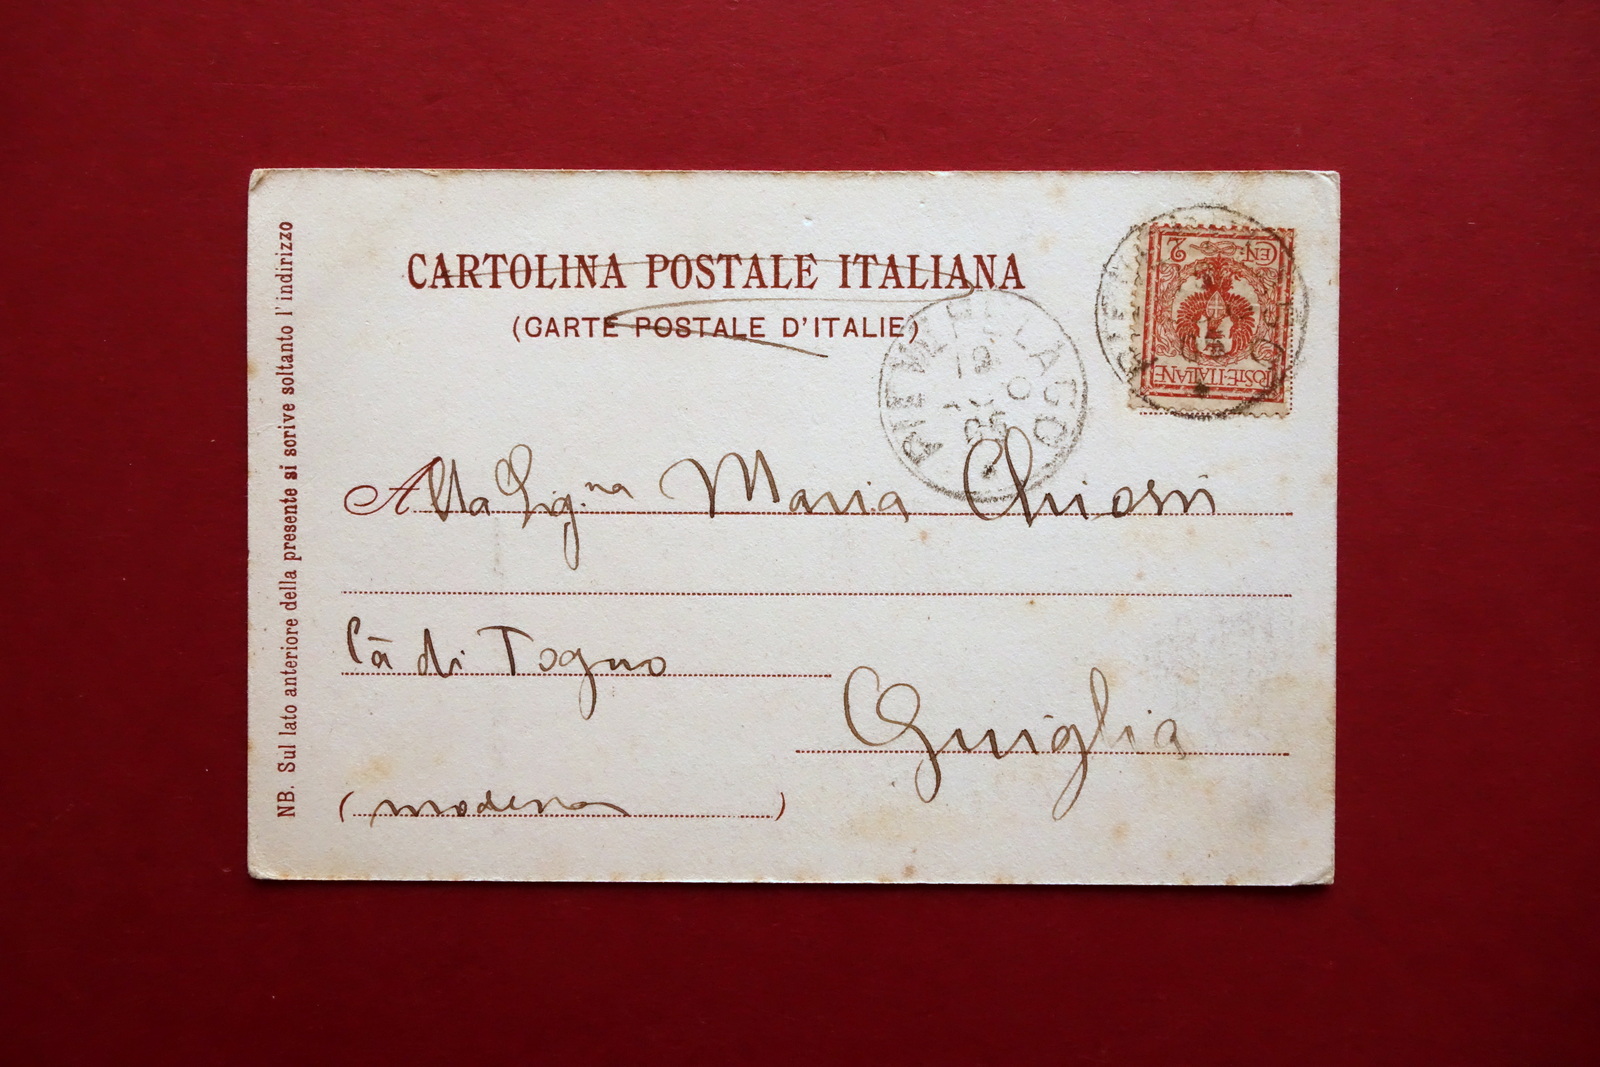 CARTOLINA POSTALE ITALIANA
(CARTE POSTALE D'ITALIE)
NB. Sul lato anteriore della presente si scrive soltanto l'indirizzo
CEN. 2
POSTE·ITALIANE
PIEVEPELAGO
Alla Sig.na Maria Chiossi
Cà di Togno
Guiglia
(Modena)